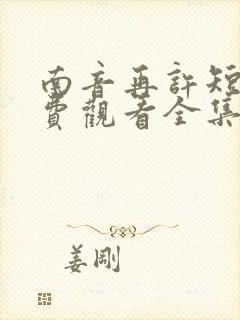 南音再許短
費觀看全集
姜剛